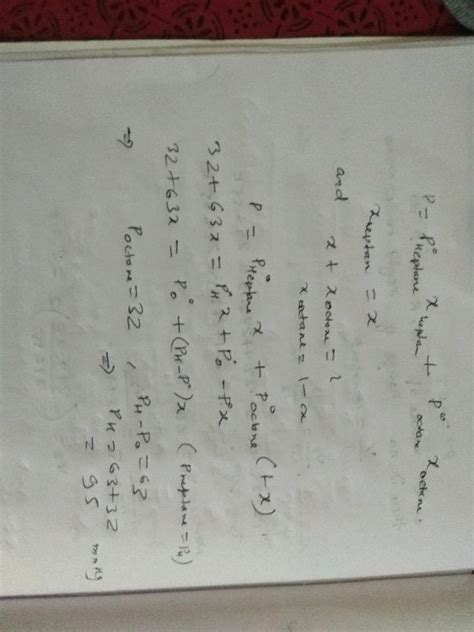 P = P°Heptane x heptan + P° octan x octane.
x heptan = x
and x + x octane = 1
x octane = 1 - x
P = P°Heptane x + P°octane (1-x)
32 + 63x = P°H x + P°o - P°x
32 + 63x = P°o + (PH-P°)x (P heptane = PH)
⇒ P octane = 32 , PH - Po = 63
⇒ PH = 63 + 32
= 95 mmHg